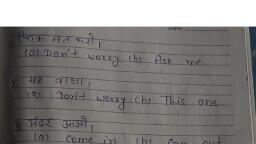 फिक्र मत करो।
(a) Don't worry (b) Ask me.
यह वाला।
(a) Don't worry (b) This one.
अंदर आओ।
(a) Come in (b) Go out